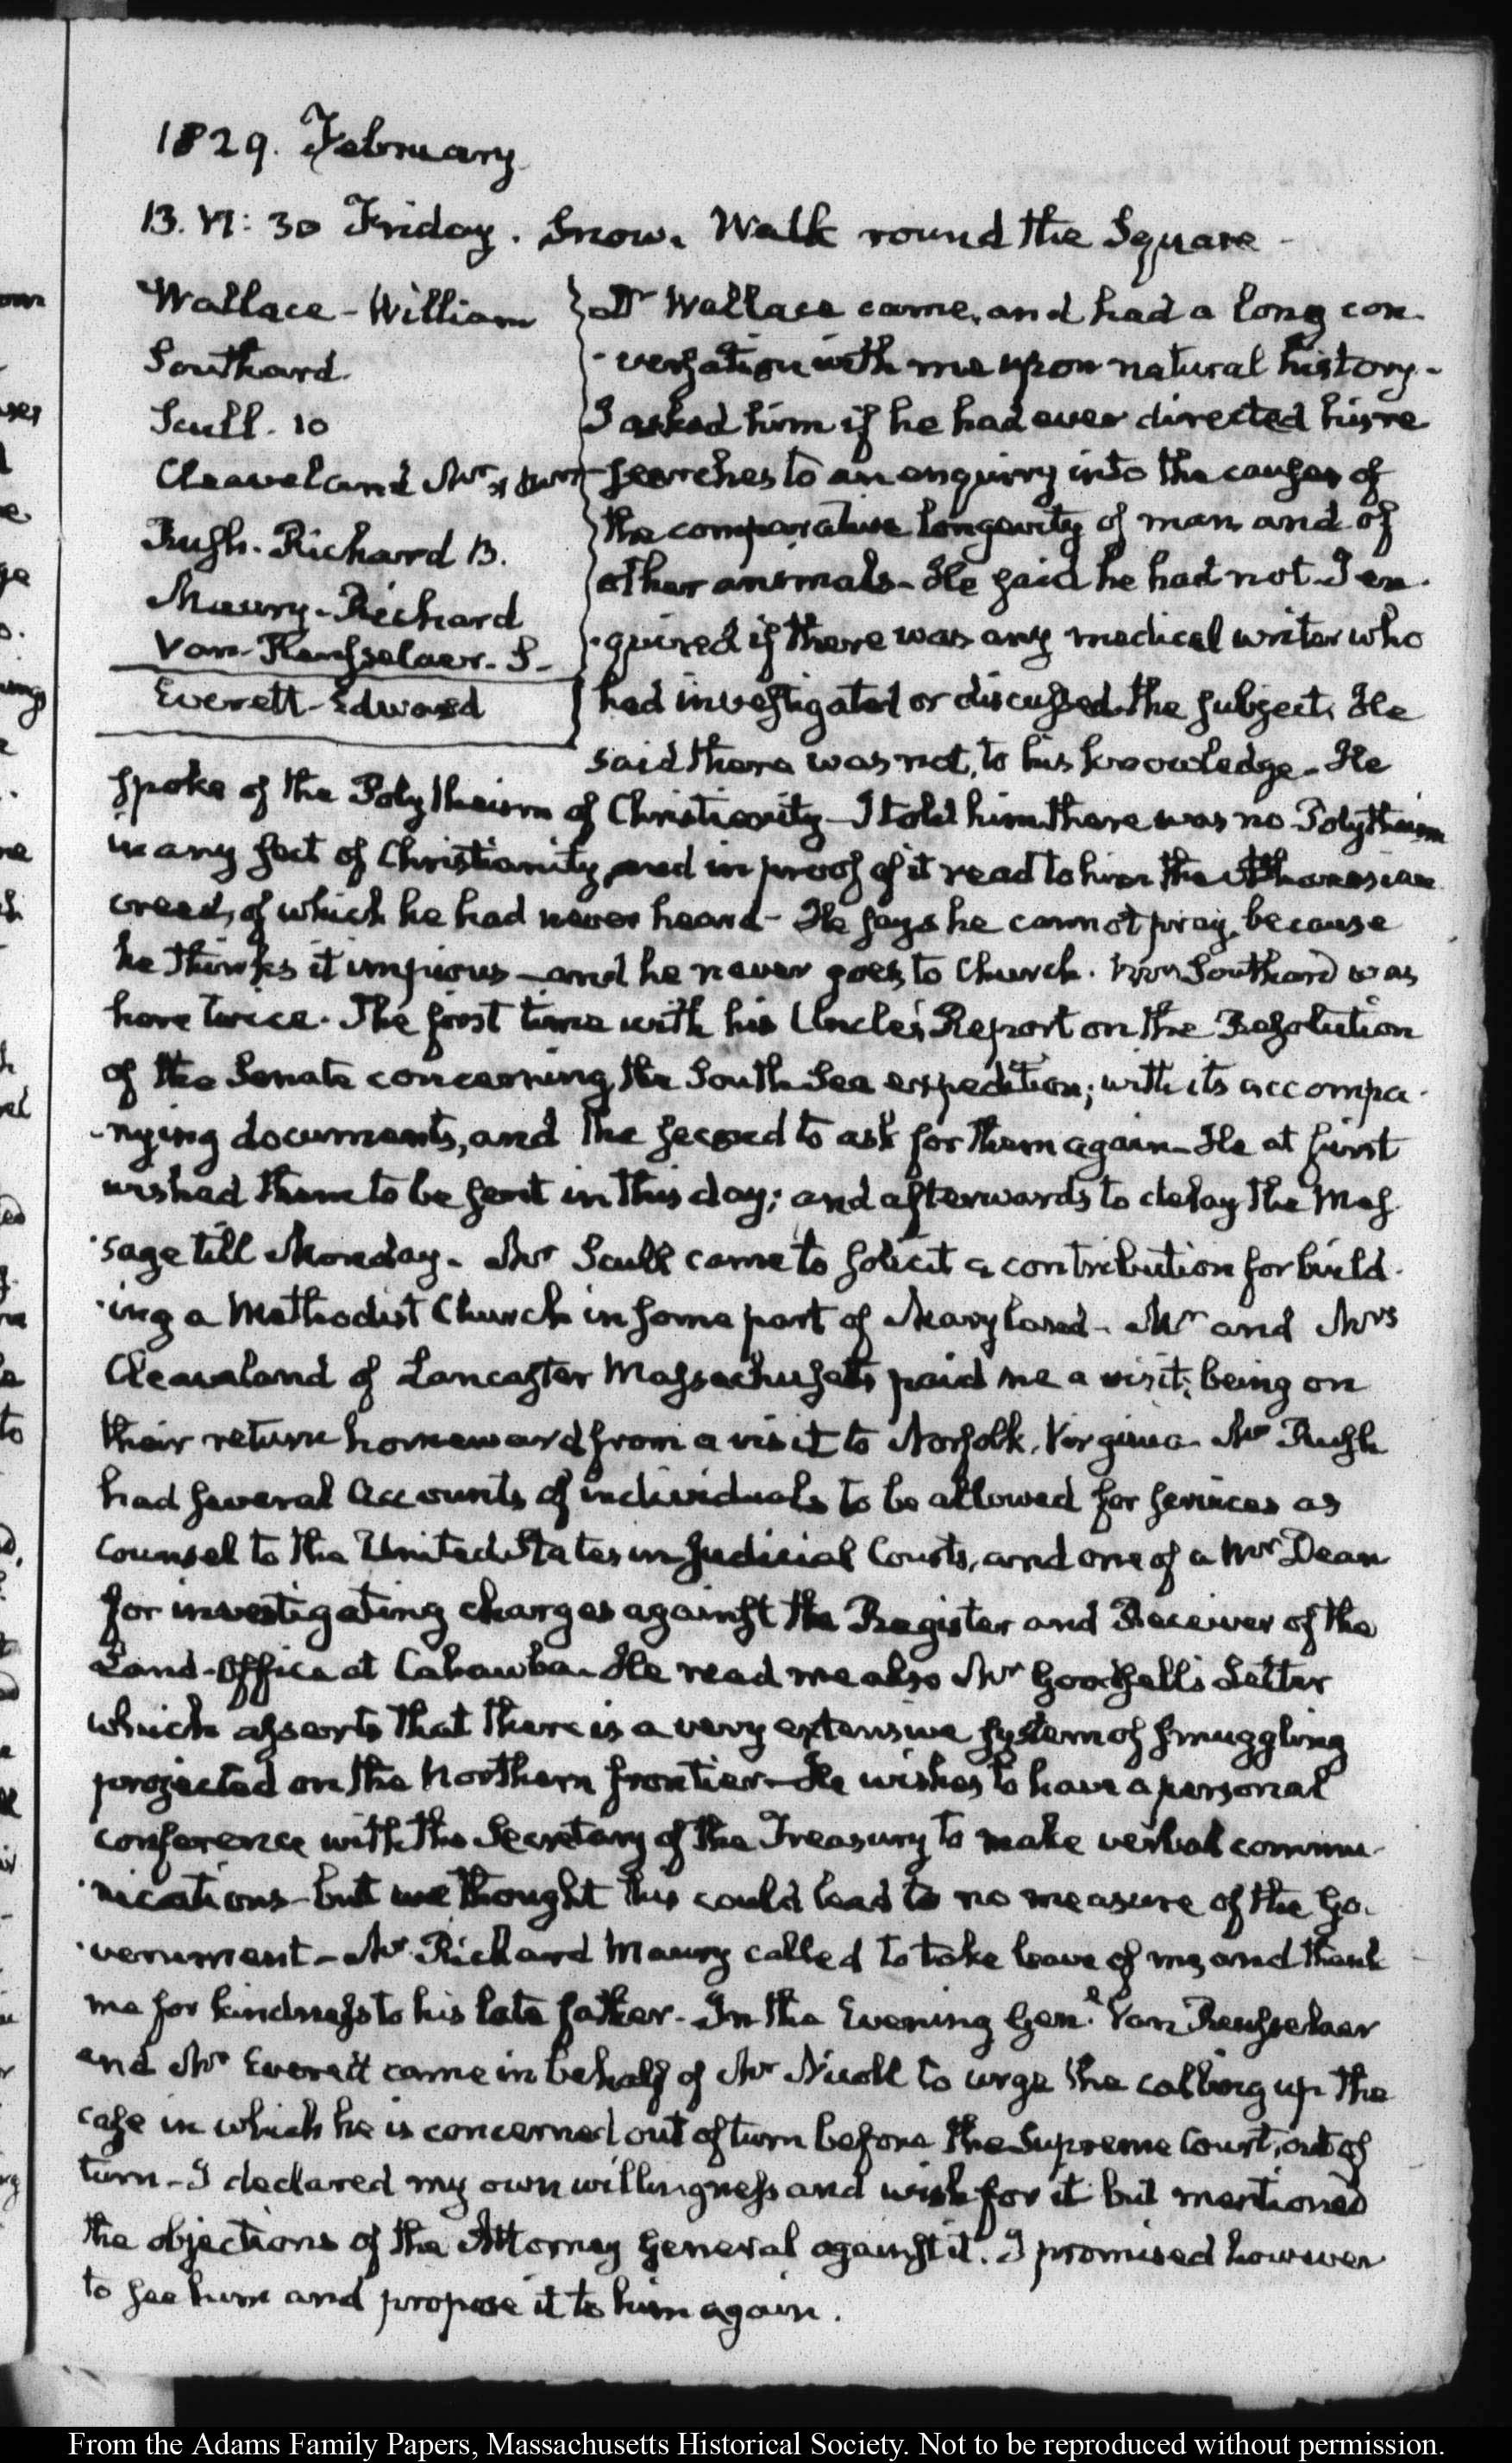 1829. February
13. VI: 30 Friday. Snow. Walk round the Square -
Wallace - William
Southard
Scull. 10
Cleaveland Mr & Mrs
Rush. Richard B.
Maury - Richard
Van Rensselaer. S.
Everett - Edward
Dr Wallace came, and had a long con-
-versation with me upon natural history -
I asked him if he had ever directed his re
searches to an enquiry into the causes of
the comparative longevity of man and of
other animals - He said he had not - I en-
-quired if there was any medical writer who
had investigated or discussed the subject. He
said there was not, to his knowledge - He
spoke of the Polytheism of Christianity - I told him there was no Polytheism
in any sect of Christianity, and in proof of it read to him the Athanasian
creed, of which he had never heard - He says he cannot pray, because
he thinks it impious - and he never goes to Church. Southard was
here twice. The first time with his Uncle's Report on the Resolution
of the Senate concerning the South Sea expedition; with its accompa-
-nying documents, and the second to ask for them again - He at first
wished them to be sent in this day; and afterwards to delay the Mes
-sage till Monday. Mr Scull came to solicit a contribution for build-
-ing a Methodist Church in some part of Maryland - Mr and Mrs
Cleaveland of Lancaster Massachusetts paid me a visit; being on
their return homeward from a visit to Norfolk, Virginia. Mr Rush
had several accounts of individuals to be allowed for services as
Counsel to the United States in Judicial Courts, and one of a Mr Dean
for investigating charges against the Register and Receiver of the
Land-Office at Cahawba - He read me also Mr Letter
which asserts that there is a very extensive system of smuggling
projected on the Northern frontier - He wishes to have a personal
conference with the Secretary of the Treasury to make verbal commu-
-nications - but we thought this could lead to no measure of the Go-
-vernment - Mr Richard Maury called to take leave of me, and thank
me for kindness to his late father - In the Evening Genl. Van Rensselaer
and Mr Everett came in behalf of Mr Nicoll to urge the calling up the
case in which he is concerned out of turn before the Supreme Court, out of
turn - I declared my own willingness and wish for it but mentioned
the objections of the Attorney General against it. I promised however
to see him and propose it to him again.
From the Adams Family Papers, Massachusetts Historical Society. Not to be reproduced without permission.